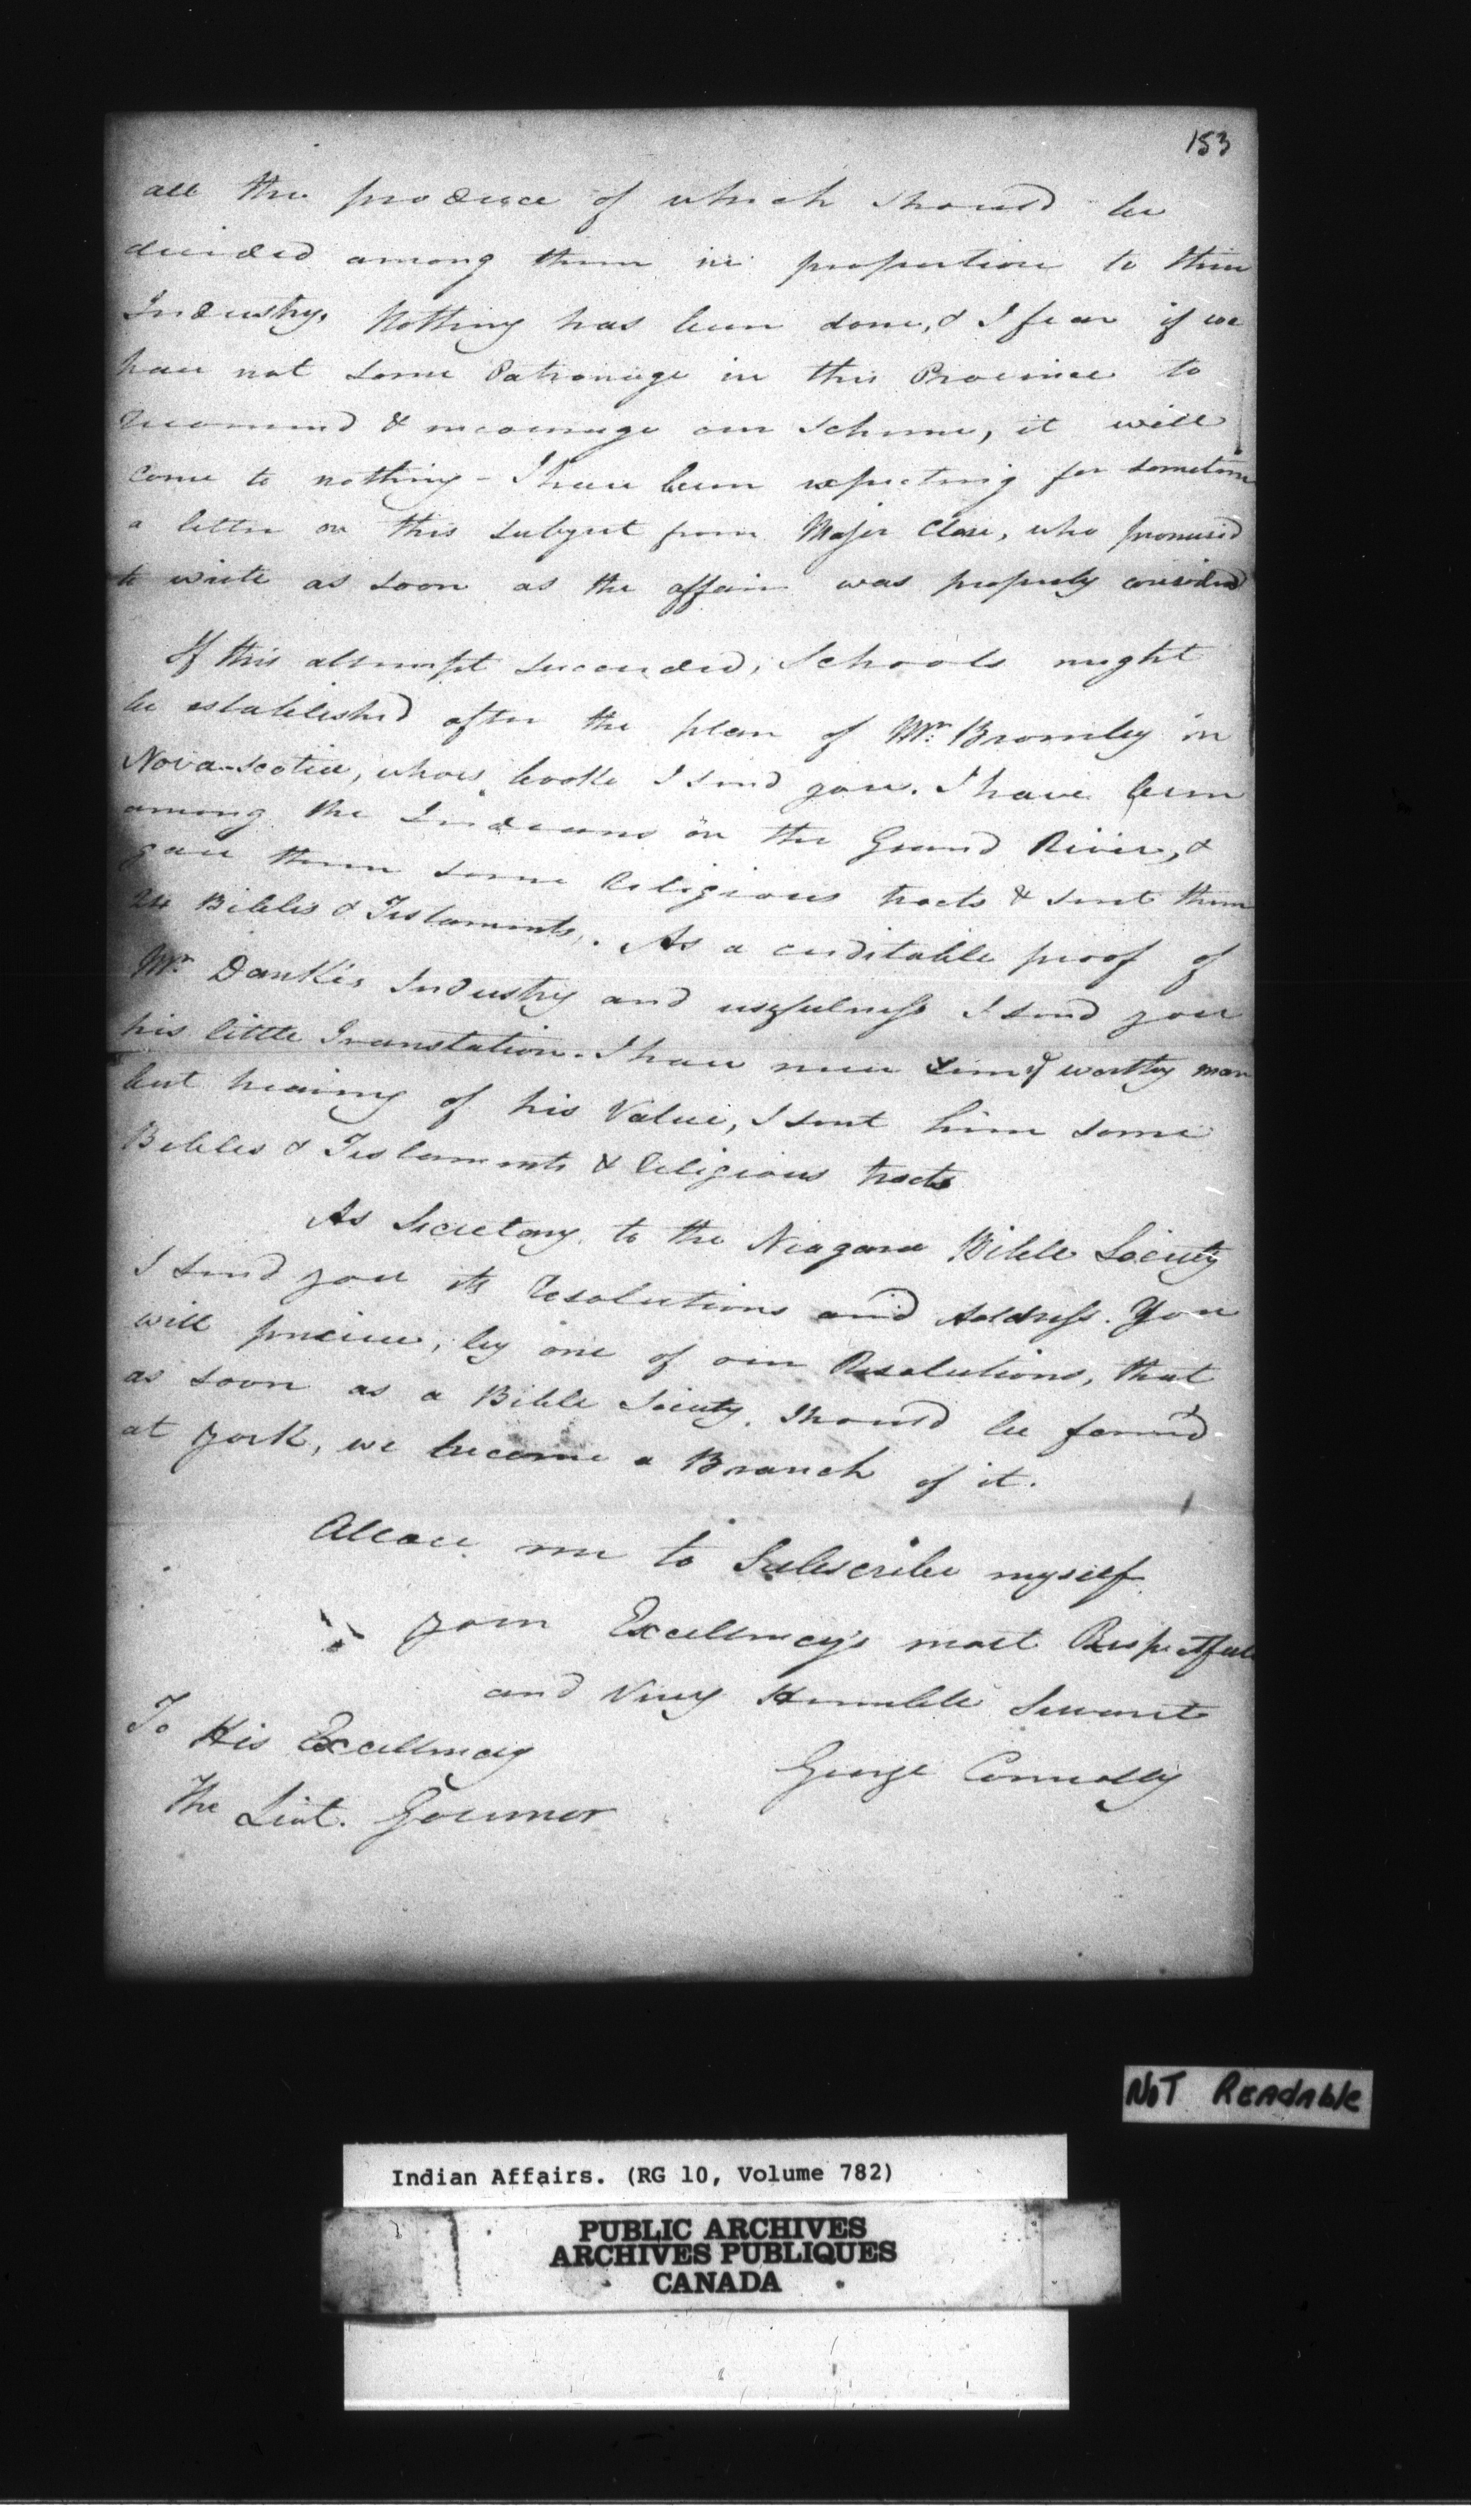 153
all the produce of which should be
divided among them in proportion to their
Industry. Nothing has been done, & I fear if we
have not some Patronage in this Province to
recommend & encourage our Scheme, it will
come to nothing - I have been expecting for sometime
a letter on this subject from Major Clare, who promised
to write as soon as the affair was properly considered
If this attempt succeeded, Schools might
be established after the plan of Mr. Bromley in
Nova-Scotia, whose books I send you. I have been
among the Indians on the Grand River, &
gave them some Religious tracts & sent them
24 Bibles & Testaments. As a creditable proof of
Mr. Danke's Industry and usefulness I send you
his little Translation. I have never seen ye worthy man
but hearing of his Value, I sent him some
Bibles & Testaments & Religious tracts
As Secretary to the Niagara Bible Society
I send you its Resolutions and Address. You
will perceive, by one of our Resolutions, that
as soon as a Bible Society should be form'd
at York, we become a Branch of it.
Allow me to Subscribe myself
your Excellency's most Respectful
and Very Humble Servant
George Connolly
To His Excellency
The Lieut. Governor
NOT ReadAble
Indian Affairs. (RG 10, Volume 782)
PUBLIC ARCHIVES
ARCHIVES PUBLIQUES
CANADA